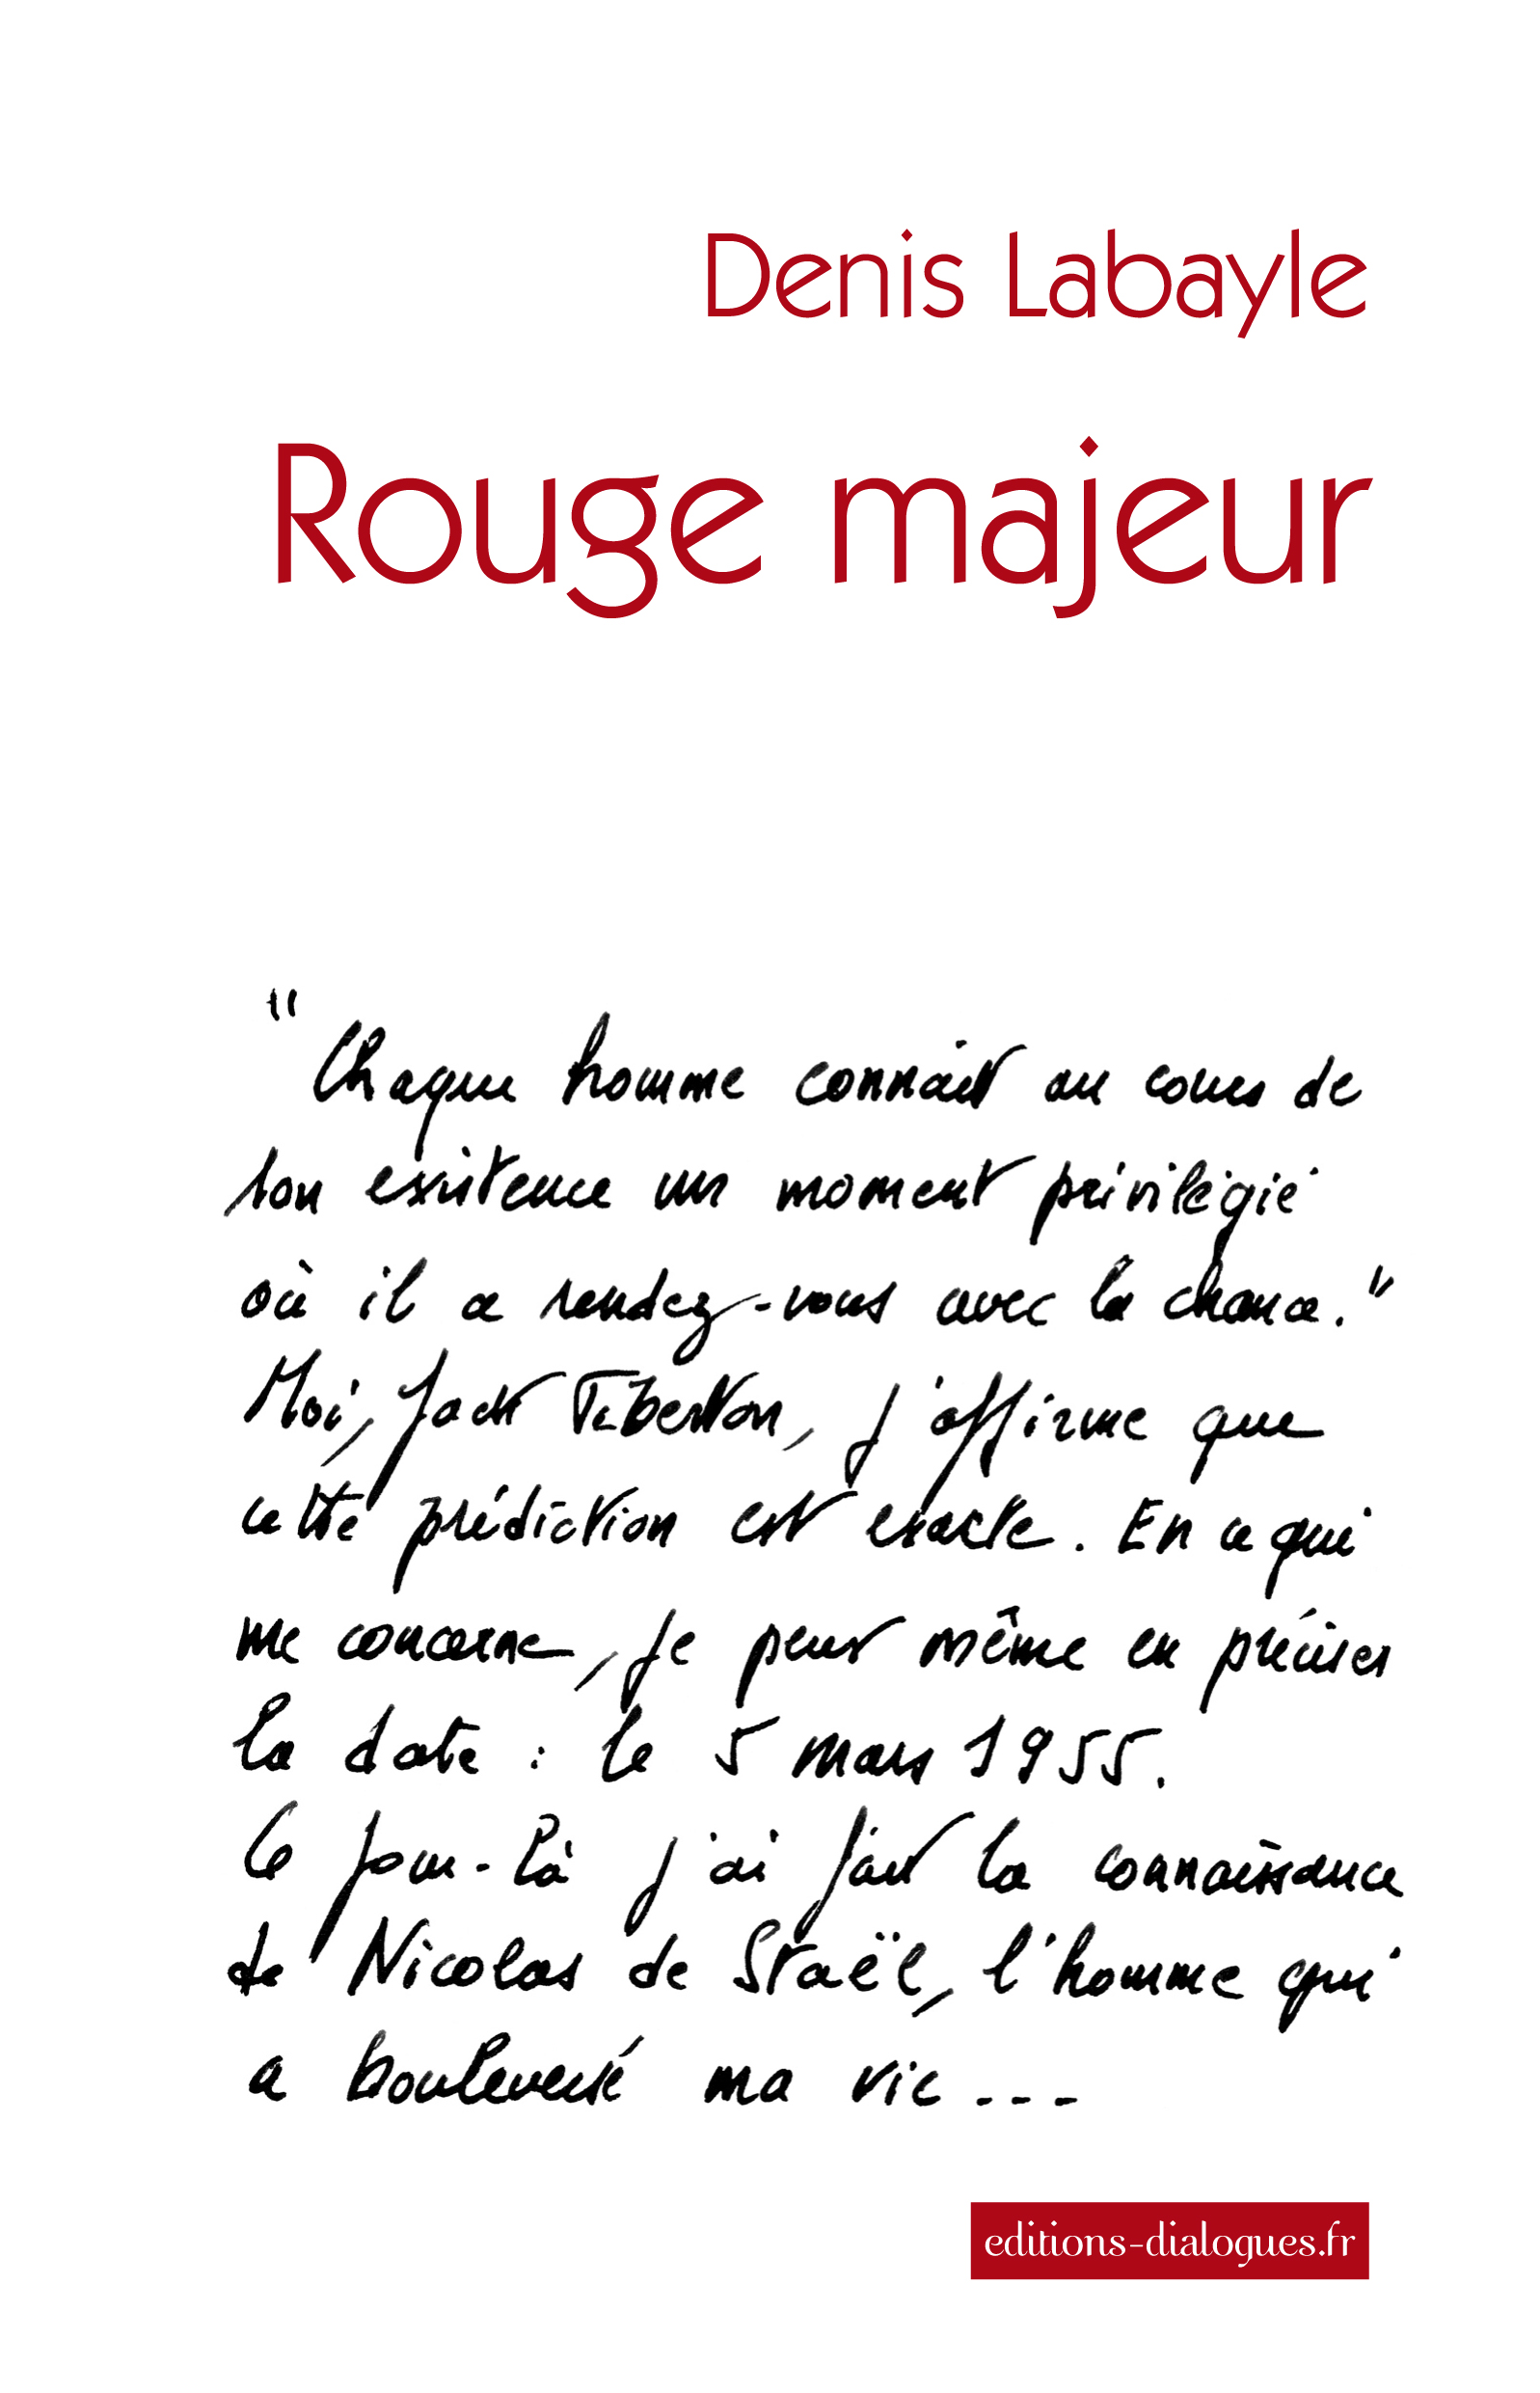 Denis Labayle
Rouge majeur
"Chaque homme connaît au cours de
son existence un moment privilégié
où il a rendez-vous avec la chance."
Moi, Jack Tiberton, j'affirme que
cette prédiction est exacte. En ce qui
me concerne, je peux même en préciser
la date : le 5 mars 1955.
Ce jour-là j'ai fait la connaissance
de Nicolas de Staël, l'homme qui
a bouleversé ma vie...
editions-dialogues.fr